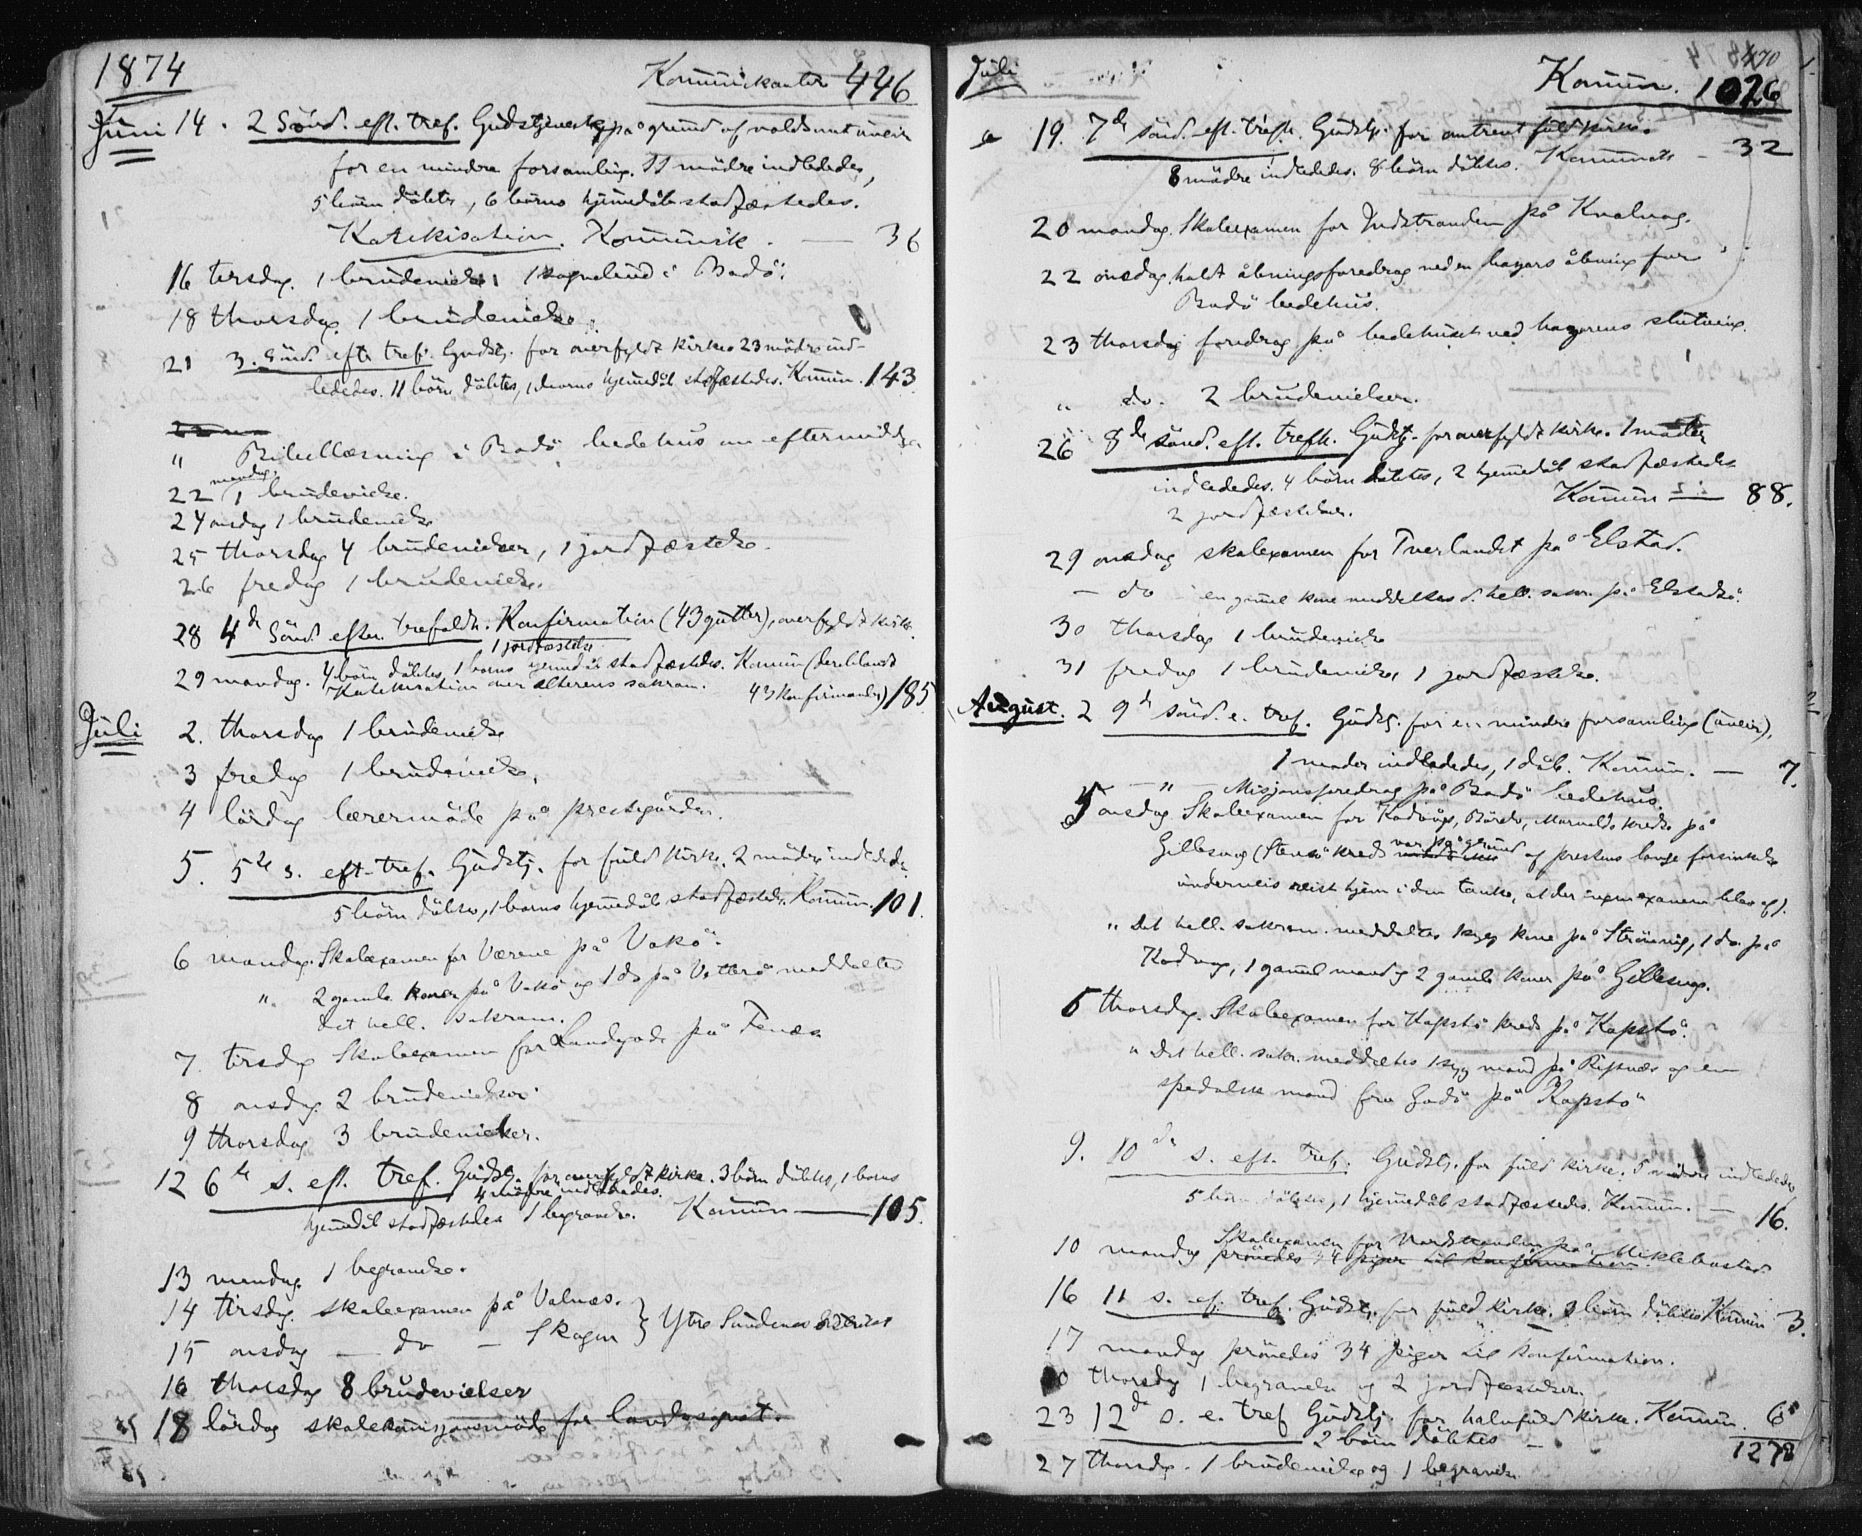 1874
Kommunikanter 446
Juni 14. 2 Sönd. eft. tref. Gudstjeneste på grund af voldsomt uveir
for en mindre forsamling. 11 mödre indlededes,
5 börn döbtes, 6 börns hjemmedåb stadfæstedes.
Katekisation. Kommunik. — 36
16 tirsdag. 1 brudevielse, 1 sognebud i Bodö.
18 thorsdag 1 brudevielse
21 3. Sönd. efter tref. Gudstj. for overfyldt kirke 23 mödre ind-
lededes. 11 börn döbtes, 1 barns hjemmedåb stadfæstedes. Kommun. 143
" Bibellæsning i Bodö bedehus om eftermiddagen
22 mandag 1 brudevielse.
24 onsdag 1 brudevielse
25 thorsdag 4 brudevielser, 1 jordfæstelse.
26 fredag 1 brudevielse.
28 4de Sönd. efter trefoldh. Konfirmation (43 gutter), overfyldt kirke.
1 jordfæstelse
29 mandag. 4 börn döbtes, 1 barns hjemmedåb stadfæstedes. Kommun (deriblandt
Katekisation over alterens sakram. 43 konfirmander) 185
Juli 2. thorsdag 1 brudevielse
3 fredag 1 brudevielse.
4 lördag lærermöde på prestegården.
5. 5te s. eft. tref. Gudstj. for fuld kirke. 2 mödre indlededes.
5 börn döbtes, 1 barns hjemmedåb stadfæstedes. Kommun. 101.
6 mandag. Skoleexamen for Værene på Vokö.
" 2 gamle koner på Vokö og 1 do på Votterö meddeltes
det hell. sakram.
7. tirsdag Skoleexamen for Landegode på Fenæs
8 onsdag 2 brudevielser.
9 thorsdag 3 brudevielser.
12 6te s. eft. tref. Gudstj. for overfyldt kirke. 3 börn döbtes, 1 barns
4 mödre indlededes.
hjemmedåb stadfæstedes 1 begravelse. Kommun — 105.
13 mandag 1 begravelse.
14 tirsdag. skoleexamen på Valnæs. } Ytre Sundenes distrikt
15 onsdag — do — Skagen
16 thorsdag 8 brudevielser
18 lördag skolekommissjonsmöde for landsognet.
Juli
470
Kommun. 1026
19. 7de sönd. eft. trefh. Gudstj. for omtrent fuld kirke.
8 mödre indlededes. 8 börn döbtes. Kommunik — 32
20 mandag. Skoleexamen for Indstranden på Kvalvag.
22 onsdag holdt åbningsforedrag ved en bazars åbning for
Bodö bedehus.
23 thorsdag foredrag på bedehuset ved bazarens slutning.
" do. 2 brudevielser.
26 8de sönd. eft. trefh. Gudstj. for overfyldt kirke. 1 moder
indlededes. 4 börn döbtes, 2 hjemmedåb stadfæstedes
2 jordfæstelser. Kommun — 88.
29 onsdag skoleexamen for Tverlandet på Elstad.
— do en gammel kone meddeltes d. hell. sakr. på Elstadö.
30 thorsdag 1 brudevielse
31 fredag 1 brudevielse, 1 jordfæstelse.
August. 2 9de sönd. e. tref. Gudstj. for en mindre forsamling (uveir),
1 moder indlededes, 1 dåb. Kommun. — 7.
— " — Misjonsforedrag på Bodö bedehus.
5 onsdag Skoleexamen for Kodvågs, Kreds på
Gillesvag (Stensö kreds var på grund af prestens lange forsinkelse
underveis reist hjem i den tanke, at der ingen examen blev af).
" Det hell. sakram. meddeltes 1 syg kone på Strömnig, 1 do. på
Kodvag, 1 gammel mand og 2 gamle koner på Gillesvag.
6 thorsdag. Skoleexamen for Kapstö kreds på Kapstö.
" Det hell. sakr. meddeltes 1 syg mand på Ripnæs og en
spedalsk mand fra på Kapstö
9. 10de s. eft. tref. Gudstj. for fuld kirke. 5 mödre indlededes
5 börn döbtes, 1 hjemmedåb stadfæstedes. Kommun. — 16.
Skoleexamen for Nordstranden på Miklebostad
10 mandag prövedes 34 piger til konfirmation
16 11 s. ef. tref. Gudstj. for fuld kirke. 2 börn döbtes Kommun 3.
17 mandag prövedes 34 piger til konfirmation.
20 thorsdag 1 begravelse og 2 jordfæstelser.
23 12de s. e. tref Gudstj. for halvfuld kirke. Kommun. 6
2 börn döbtes — 1278
27 thorsdag. 1 brudevielse og 1 begravelse